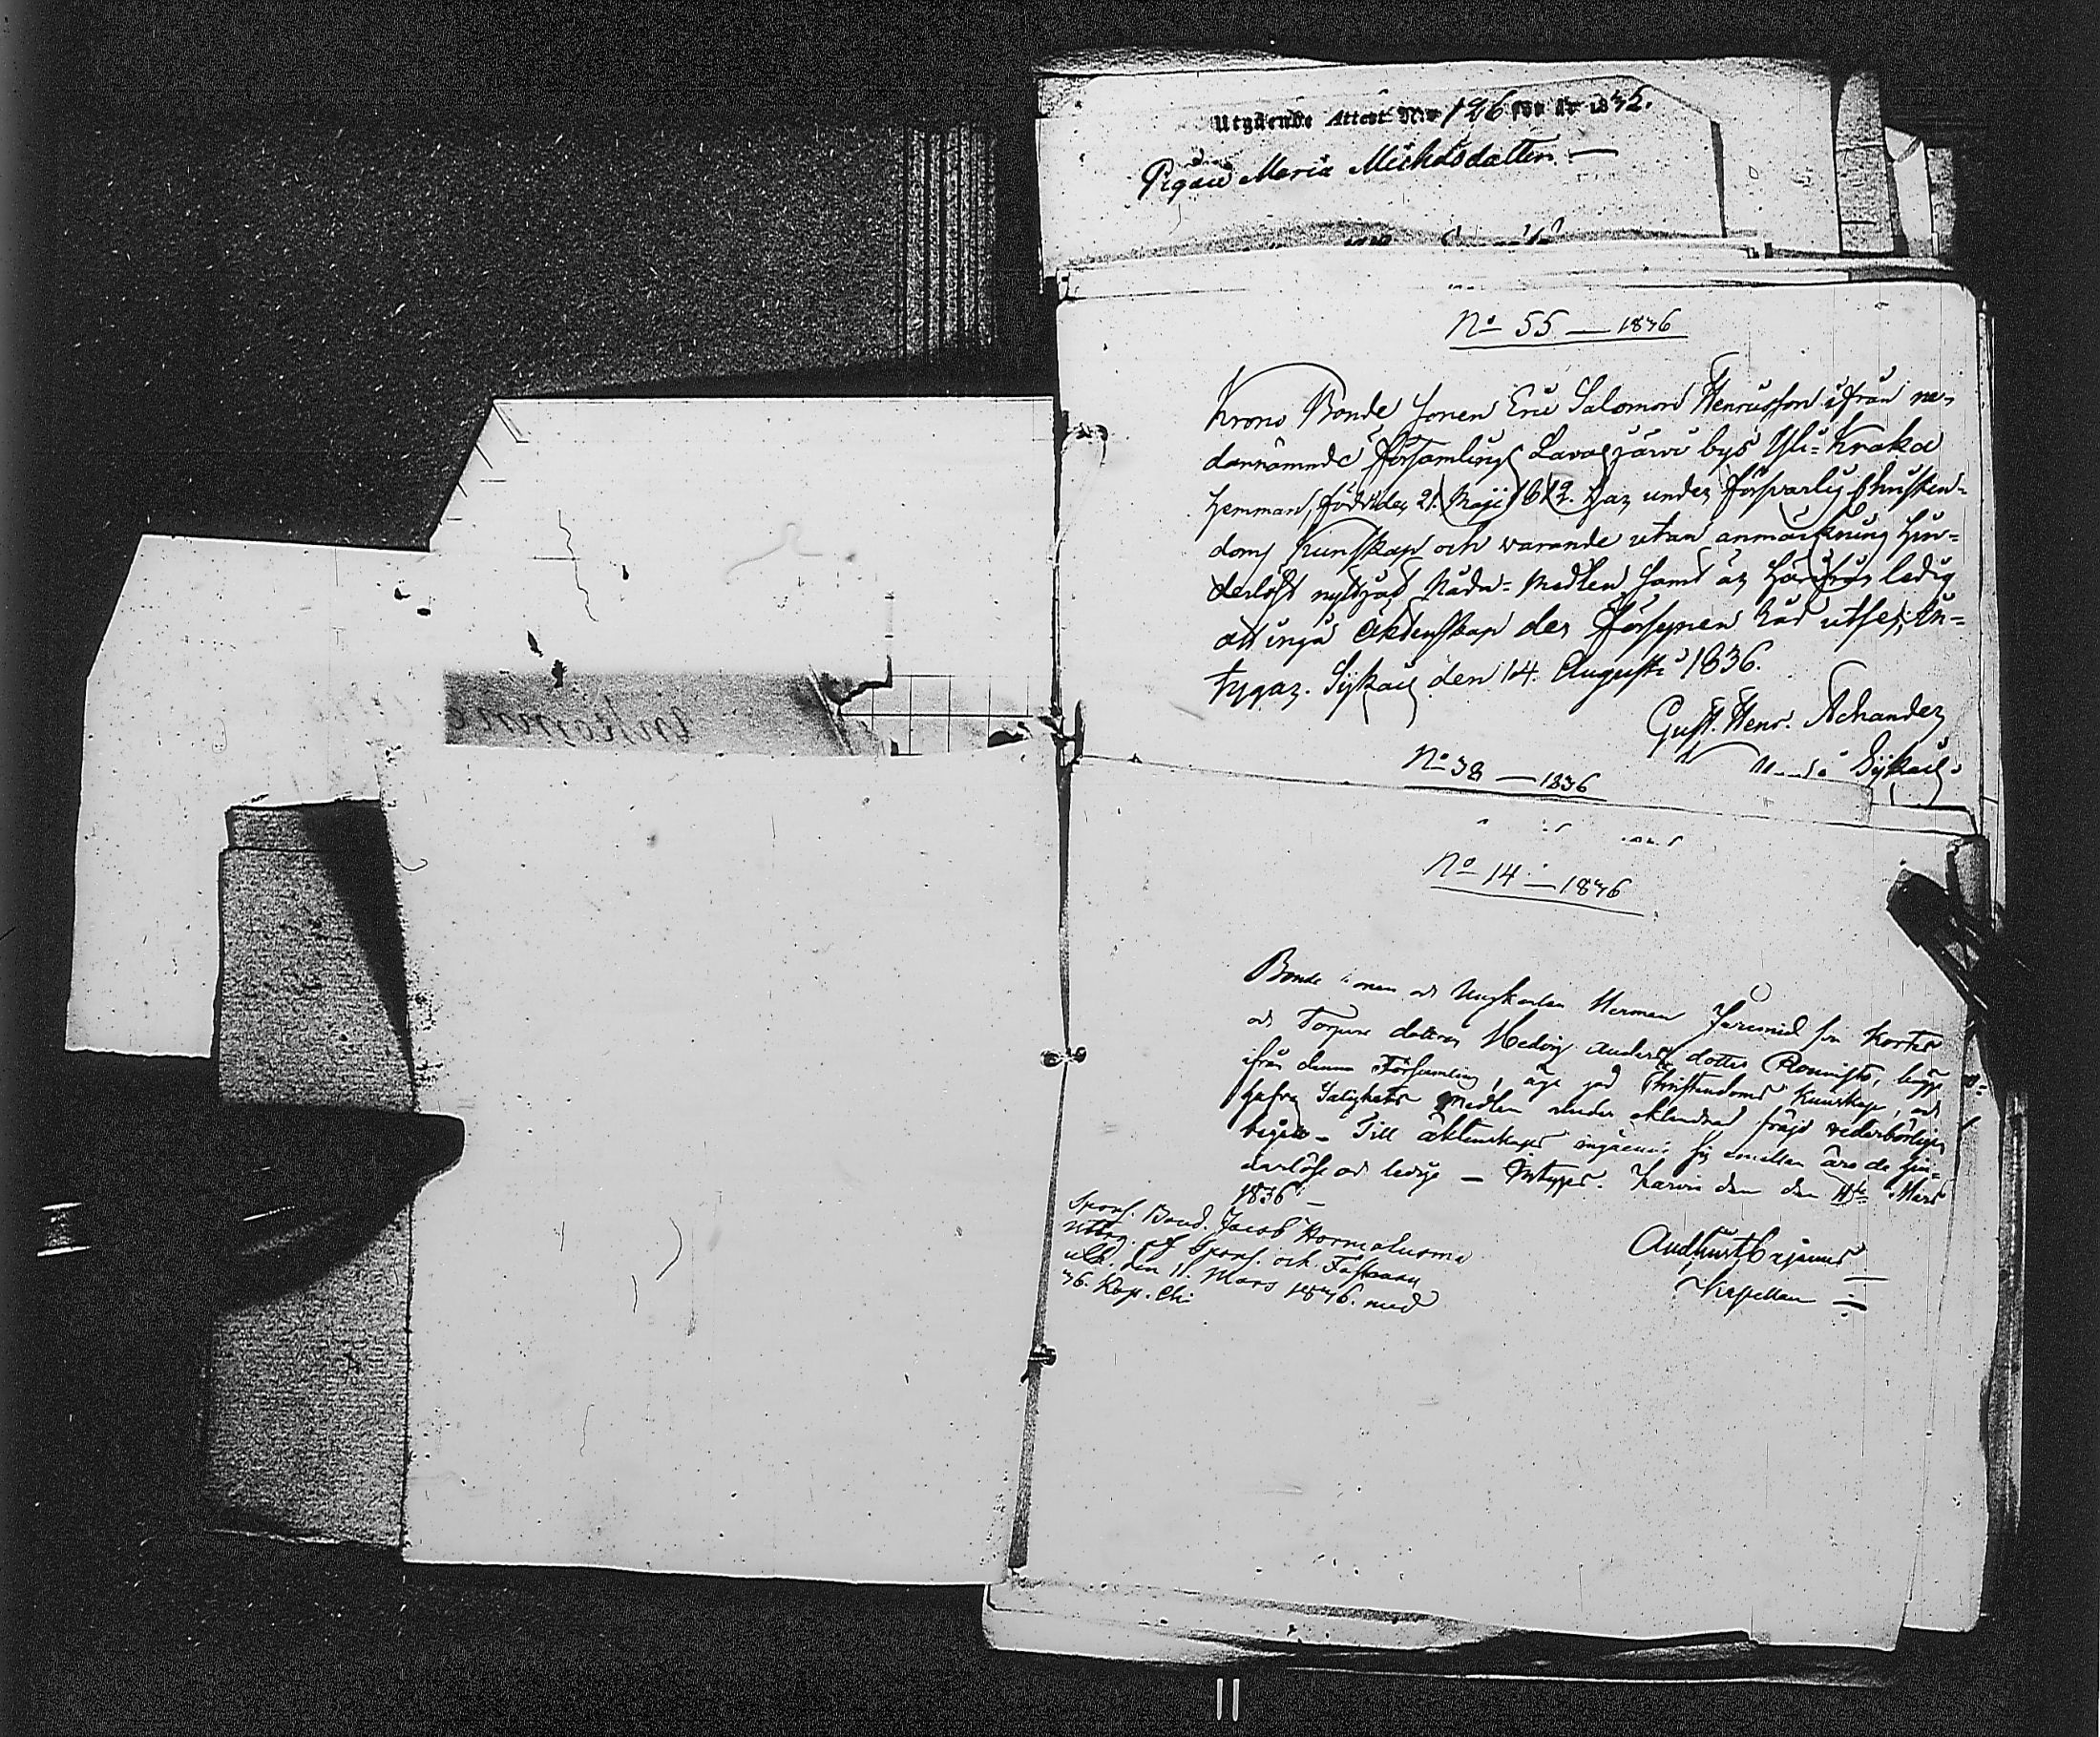 Utgående Attest N:o 126 för år 1835.
Pigan Maria Michelsdotter.—
N:o 55 — 1836
Krono Bonde Sonen Eric Salomon Henricsson ifrån ne-
dannämnde Församlings Lavajärvi bys Yli-Kraka
hemman, född den 21. Maji 1812. har under försvarlig Christen-
doms kunskap och varande utan anmärkning hin-
derlöst nyttjat Nåde-Medlen samt är härifrån ledig
att ingå Äktenskap der Försynen Råd utser; in-
tygar. Sijkais den 14. Augusti 1836.
Gust. Henr. Achander
i Sijkais.
N:o 38 — 1836
N:o 14 — 1836
Bonde sonen och Ungkarlen Herman Jeremiæ son Kortes
och Torpare dottren Hedvig Anders dotter Rounisto, begge
ifrån denna Församling, äga god Christendoms kunskap, och
hafva Salighets Medlen under oklandrad frägd vederbörligen
begått – Till äktenskaps ingående sig emellan äro de hin-
derlöse och ledige – Intygar. Karvia den 11te Mars
1836 –
Kapellan
Spons. Bond. Jacob
af Spons. och Fastman
den 11. Mars 1836. med
36. Kop.